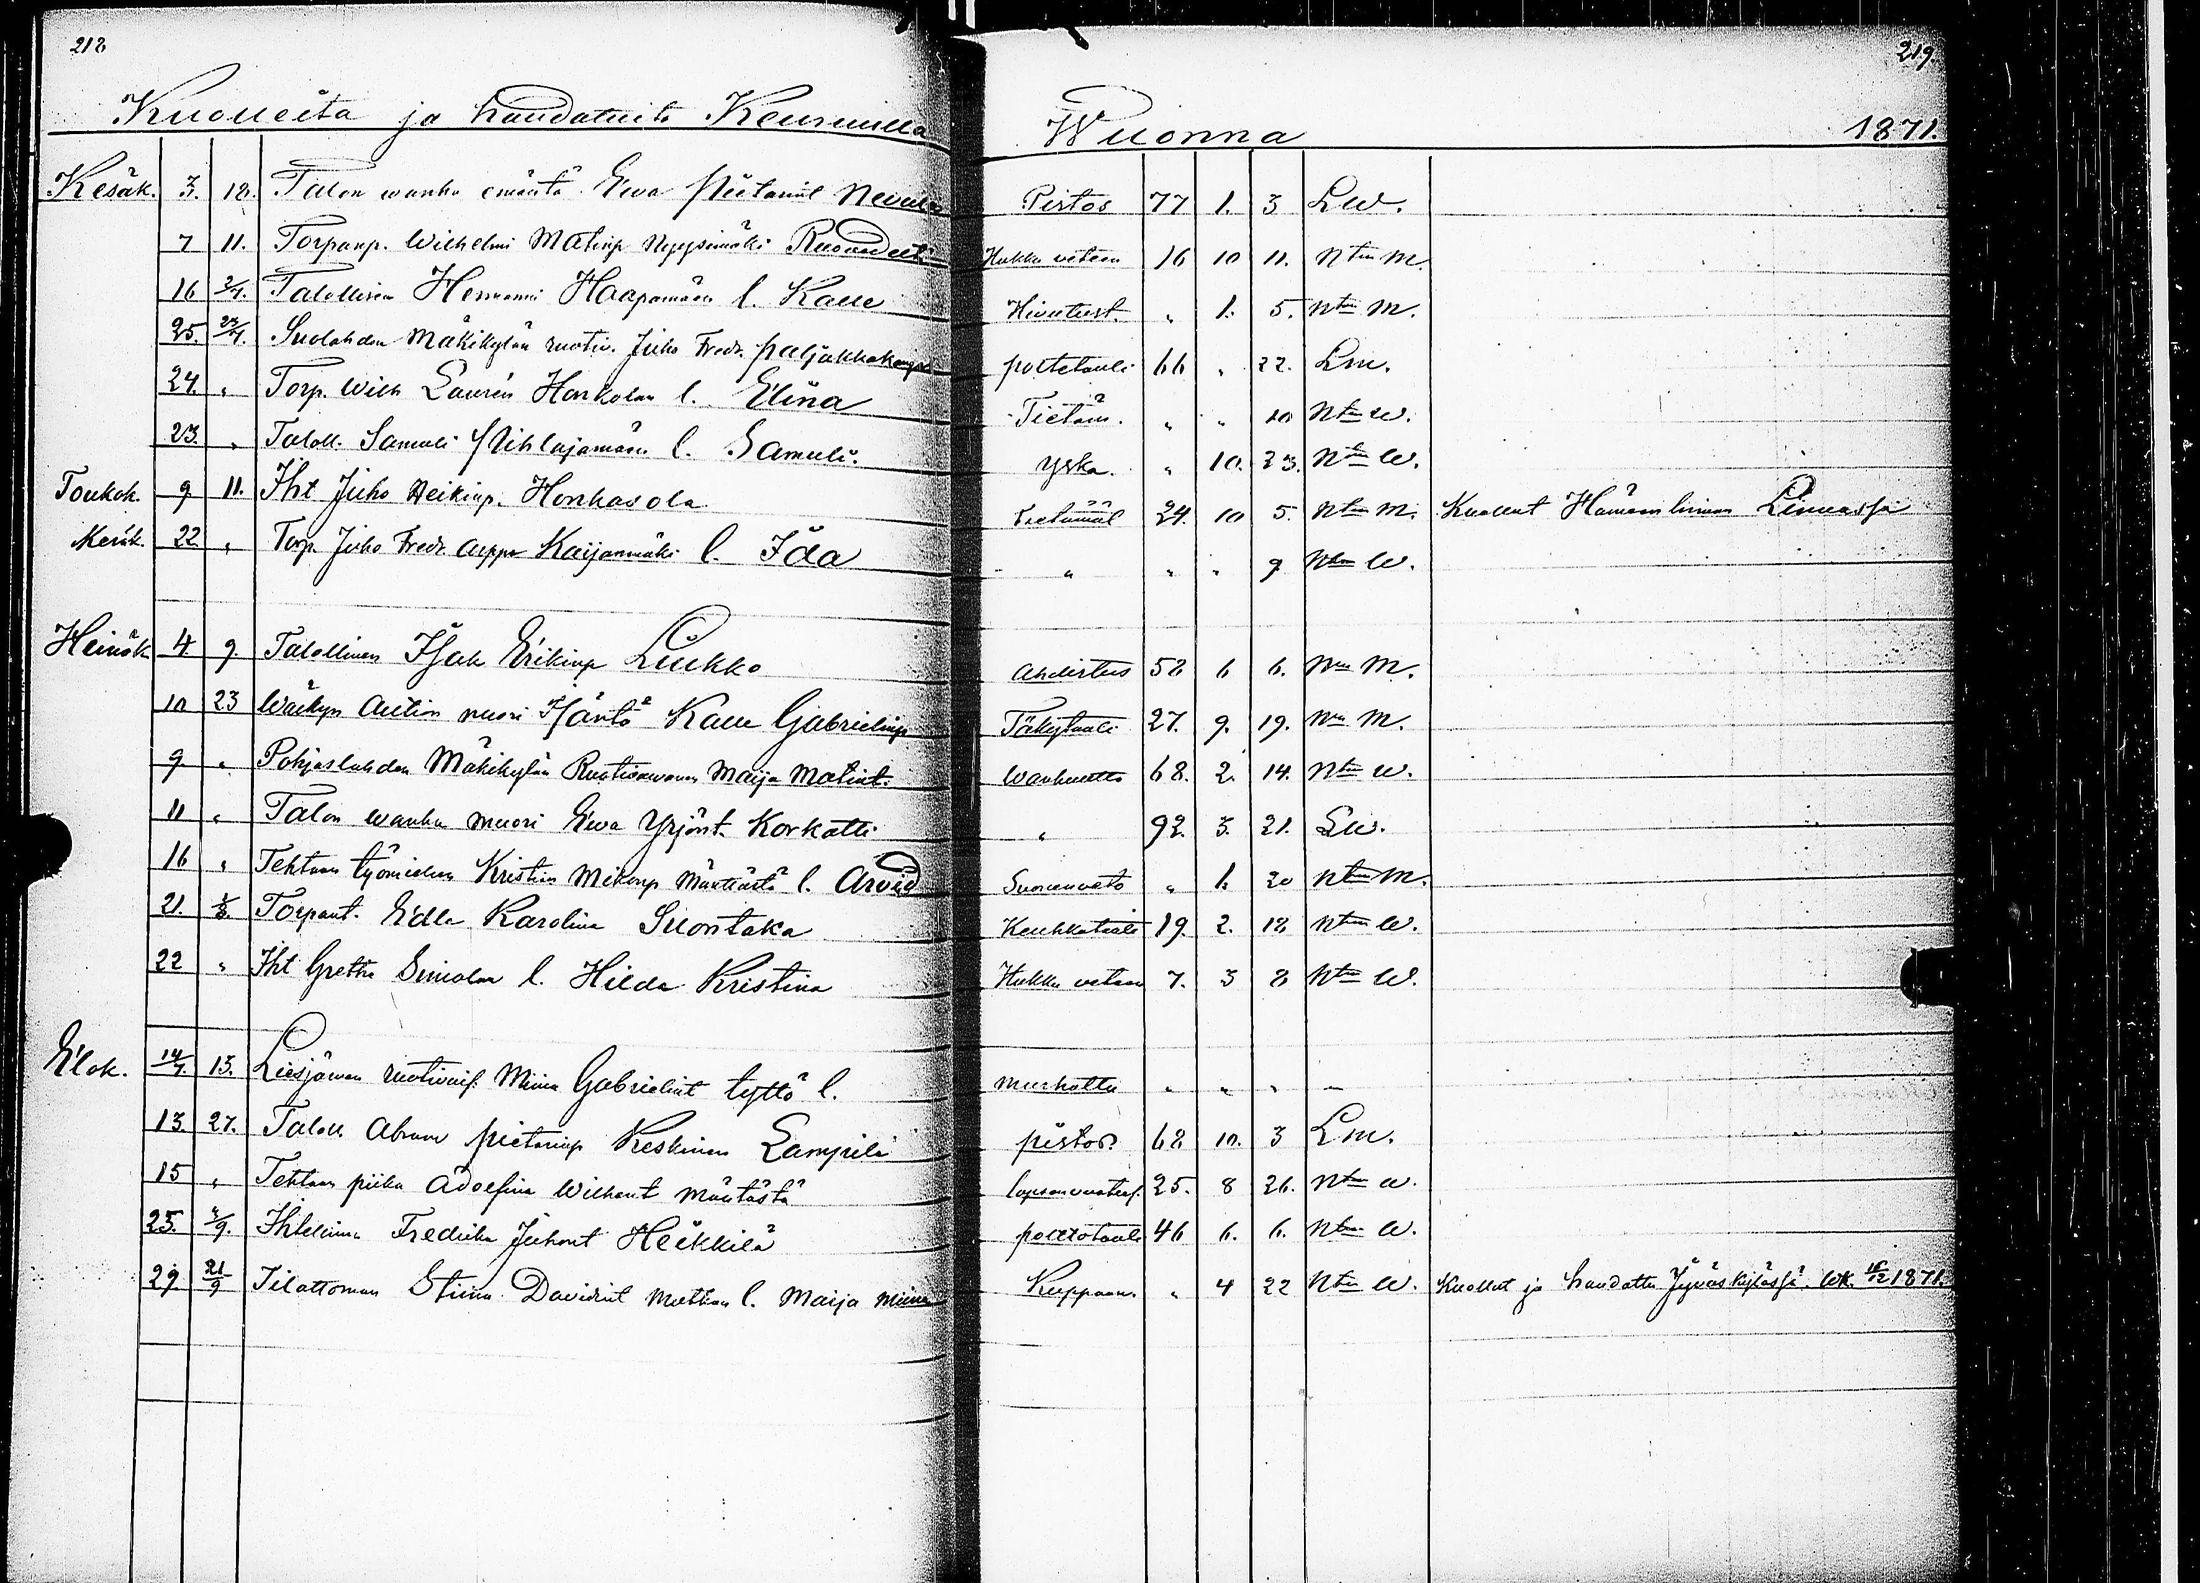 218
219.
Kuolleita ja haudatuita Keuruulla Wuonna 1871.
Kesäk. 3. 18. Talon wanha emäntä Ewa Pietarint Nevula Pistos 77 1. 3 Lw.
7 11. Torpanp. Wilhelmi Matinp Nyyssimäki Hukku veteen 16 10 11. Ntm M.
16 2/7. Talollisen Hermanni Haapamäen l. Kalle Hivutust. " 1. 5. Ntm M.
25. 2/7. Suolahden Mäkikylän ruotiv. Juho Fredr. Paljakkakangas polttotauti 66 " 22. Lm.
24. " Torp. Wilh Laurin Honkolan l. Elina Tietäm. " " 10 Ntm w.
23. " Taloll. Samuli Pihlajamäen l. Samuli. Yskä. " 10. 23. Ntm W.
Toukok. 9 11. Iht Juho Heikinp. Honkasola Tietämät 24. 10 5. Ntm M. Kuollut Hämeenlinnan Linnassa
Kesäk. 22 " Torp. Juho Fredr. Kaijanmäki l. Ida " " " 9 Ntm W.
Heinäk 4. 9. Talollinen Isak Erikinp Liukko Ahdistus 58 6 6. Nm M.
10 23 Aution nuori Isäntä Kalle Gabrielinp 27. 9. 19. Nm M.
9 " Pohjaslahden Mäkikylän Maija Matint. Wanhuutta 68. 2. 14. Ntm w.
11 " Talon wanha muori Ewa Yrjönt. Korkatti " 92. 3. 21. Lw.
16 " Tehtaan työmiehen Kristian Mikonp Mänttästä l. Arvid Suonenveto " 1. 20 Ntm M.
21. 6/8. Torpant. Edla Karolina Suontaka Keuhkotauti 19. 2. 18 Ntm W.
22 " Iht Gretha l. Hilda Kristina Hukku veteen 7. 3 8 Ntm W.
Elok. 14/7. 13. Liesjärven Miina Gabrielint tyttö l. murhattu " " " –
13. 27. Taloll. Abram Pietarinp Keskinen Lampila pistos 68 10. 3 Lm.
15 " Tehtaan piika Adolfina Wilhent Mäntästä 25. 8 26. Ntm w.
25. 3/9. Fredrika Juhont Heikkilä polttotauti 46 6. 6. Ntm W.
29. 21/9 Tilattoman Stina Davidint l. Maija Miina " 4 22 Ntm W. Kuollut ja haudattu Jyväskylässä. Wk. 1871.